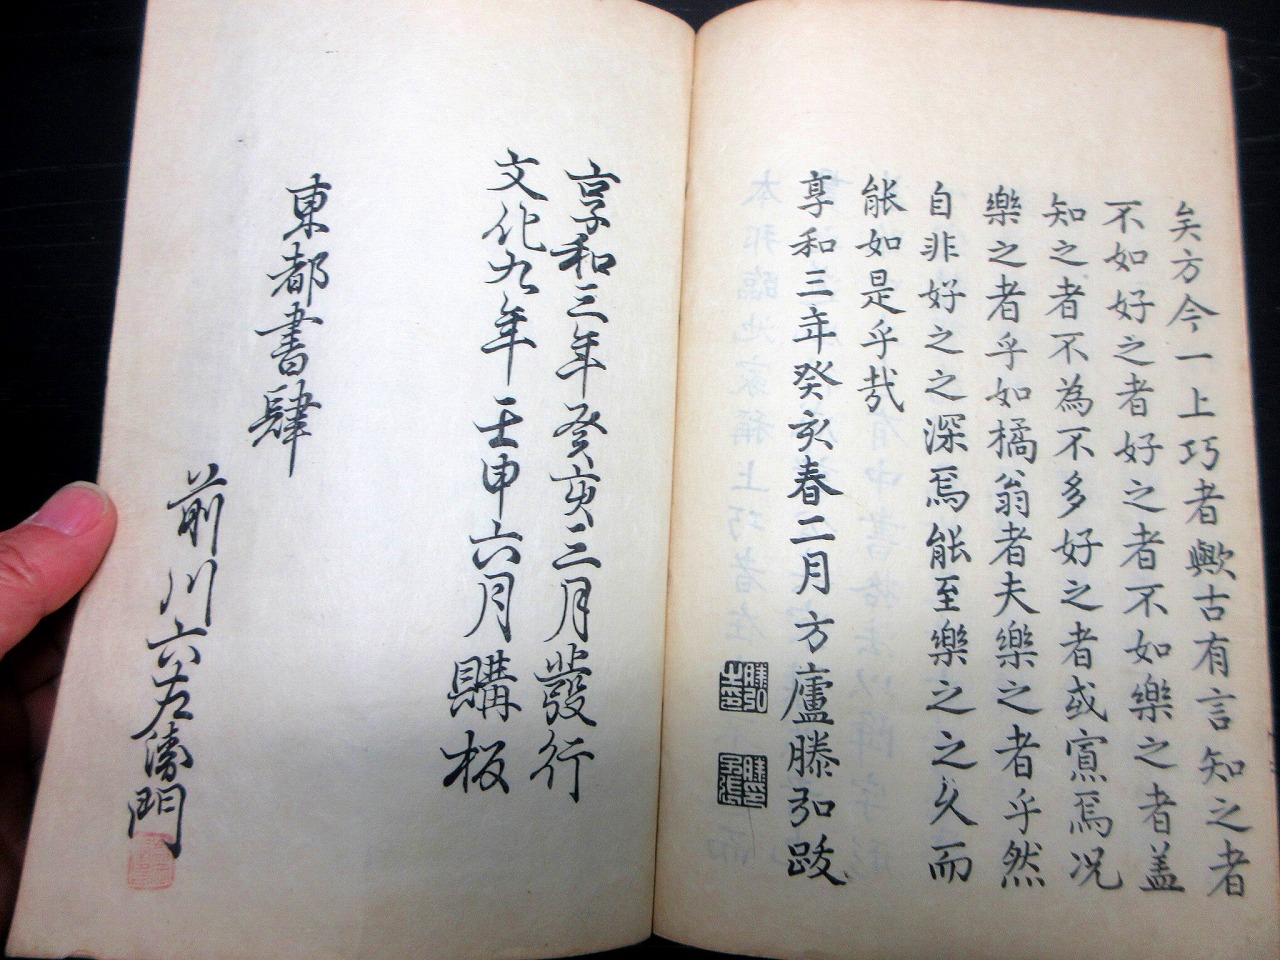 矣方今一上巧者歟古有言知之者
不如好之者好之者不如樂之者蓋
知之者不為不多好之者或寡焉況
樂之者乎如橘翁者夫樂之者乎然
自非好之之深焉能至樂之之久而
能如是乎哉
享和三年癸亥春二月方廬滕弘跋
享和三年癸亥三月發行
文化九年壬申六月購板
東都書肆
前川六左衛門